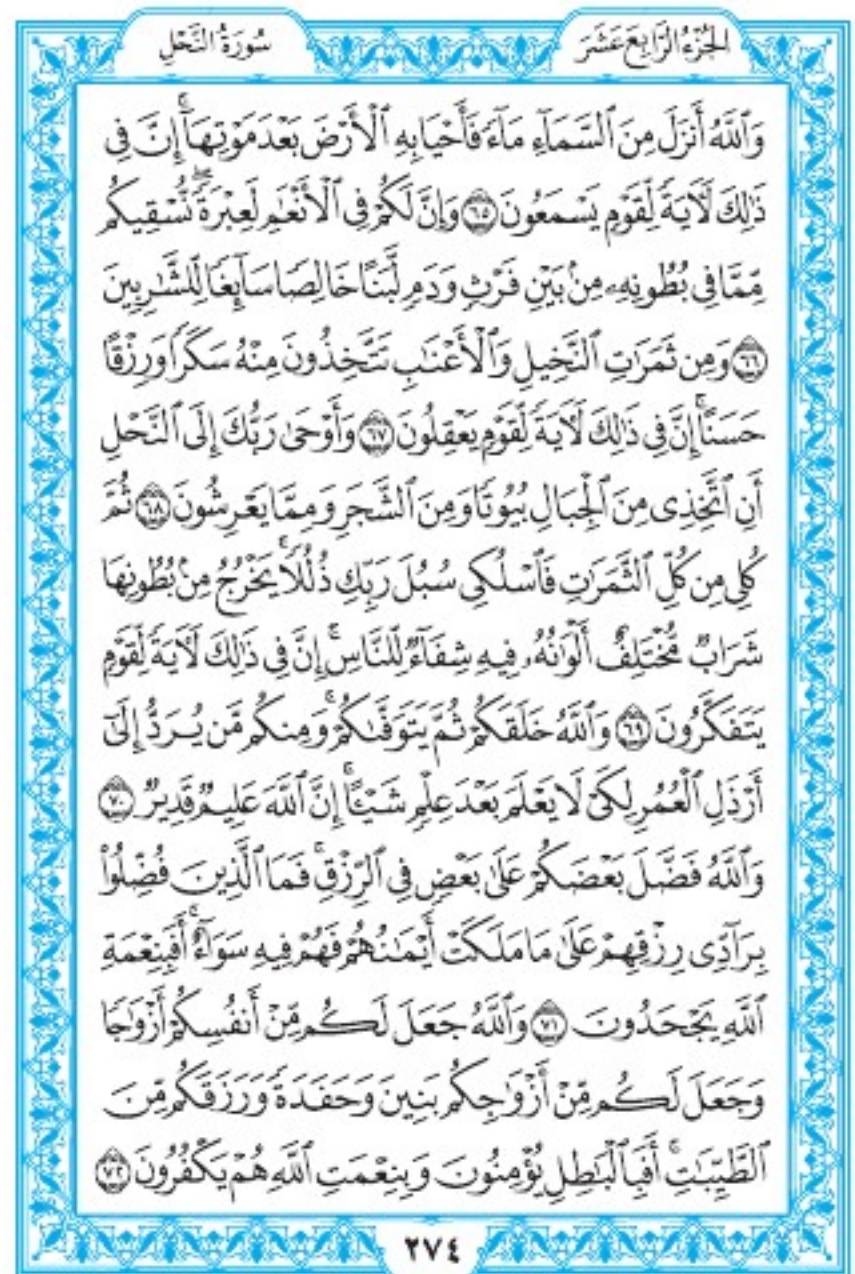 الجُزْءُ الرَّابِعَ عَشَرَ
سُورَةُ النَّحْلِ
وَٱللَّهُ أَنزَلَ مِنَ ٱلسَّمَآءِ مَآءً فَأَحْيَا بِهِ ٱلْأَرْضَ بَعْدَ مَوْتِهَآۚ إِنَّ فِى
ذَٰلِكَ لَـَٔايَةً لِّقَوْمٍ يَسْمَعُونَ ٦٥ وَإِنَّ لَكُمْ فِى ٱلْأَنْعَٰمِ لَعِبْرَةًۖ نُّسْقِيكُم
مِّمَّا فِى بُطُونِهِۦ مِنۢ بَيْنِ فَرْثٍ وَدَمٍ لَّبَنًا خَالِصًا سَآئِغًا لِّلشَّٰرِبِينَ
٦٦ وَمِن ثَمَرَٰتِ ٱلنَّخِيلِ وَٱلْأَعْنَٰبِ تَتَّخِذُونَ مِنْهُ سَكَرًا وَرِزْقًا
حَسَنًاۗ إِنَّ فِى ذَٰلِكَ لَـَٔايَةً لِّقَوْمٍ يَعْقِلُونَ ٦٧ وَأَوْحَىٰ رَبُّكَ إِلَى ٱلنَّحْلِ
أَنِ ٱتَّخِذِى مِنَ ٱلْجِبَالِ بُيُوتًا وَمِنَ ٱلشَّجَرِ وَمِمَّا يَعْرِشُونَ ٦٨ ثُمَّ
كُلِى مِن كُلِّ ٱلثَّمَرَٰتِ فَٱسْلُكِى سُبُلَ رَبِّكِ ذُلُلًاۚ يَخْرُجُ مِنۢ بُطُونِهَا
شَرَابٌ مُّخْتَلِفٌ أَلْوَٰنُهُۥ فِيهِ شِفَآءٌ لِّلنَّاسِۚ إِنَّ فِى ذَٰلِكَ لَـَٔايَةً لِّقَوْمٍ
يَتَفَكَّرُونَ ٦٩ وَٱللَّهُ خَلَقَكُمْ ثُمَّ يَتَوَفَّىٰكُمْۚ وَمِنكُم مَّن يُرَدُّ إِلَىٰٓ
أَرْذَلِ ٱلْعُمُرِ لِكَىْ لَا يَعْلَمَ بَعْدَ عِلْمٍ شَيْـًٔاۚ إِنَّ ٱللَّهَ عَلِيمٌ قَدِيرٌ ٧٠
وَٱللَّهُ فَضَّلَ بَعْضَكُمْ عَلَىٰ بَعْضٍ فِى ٱلرِّزْقِۚ فَمَا ٱلَّذِينَ فُضِّلُوا۟
بِرَآدِّى رِزْقِهِمْ عَلَىٰ مَا مَلَكَتْ أَيْمَٰنُهُمْ فَهُمْ فِيهِ سَوَآءٌۚ أَفَبِنِعْمَةِ
ٱللَّهِ يَجْحَدُونَ ٧١ وَٱللَّهُ جَعَلَ لَكُم مِّنْ أَنفُسِكُمْ أَزْوَٰجًا
وَجَعَلَ لَكُم مِّنْ أَزْوَٰجِكُم بَنِينَ وَحَفَدَةً وَرَزَقَكُم مِّنَ
ٱلطَّيِّبَٰتِۚ أَفَبِٱلْبَٰطِلِ يُؤْمِنُونَ وَبِنِعْمَتِ ٱللَّهِ هُمْ يَكْفُرُونَ ٧٢
٢٧٤